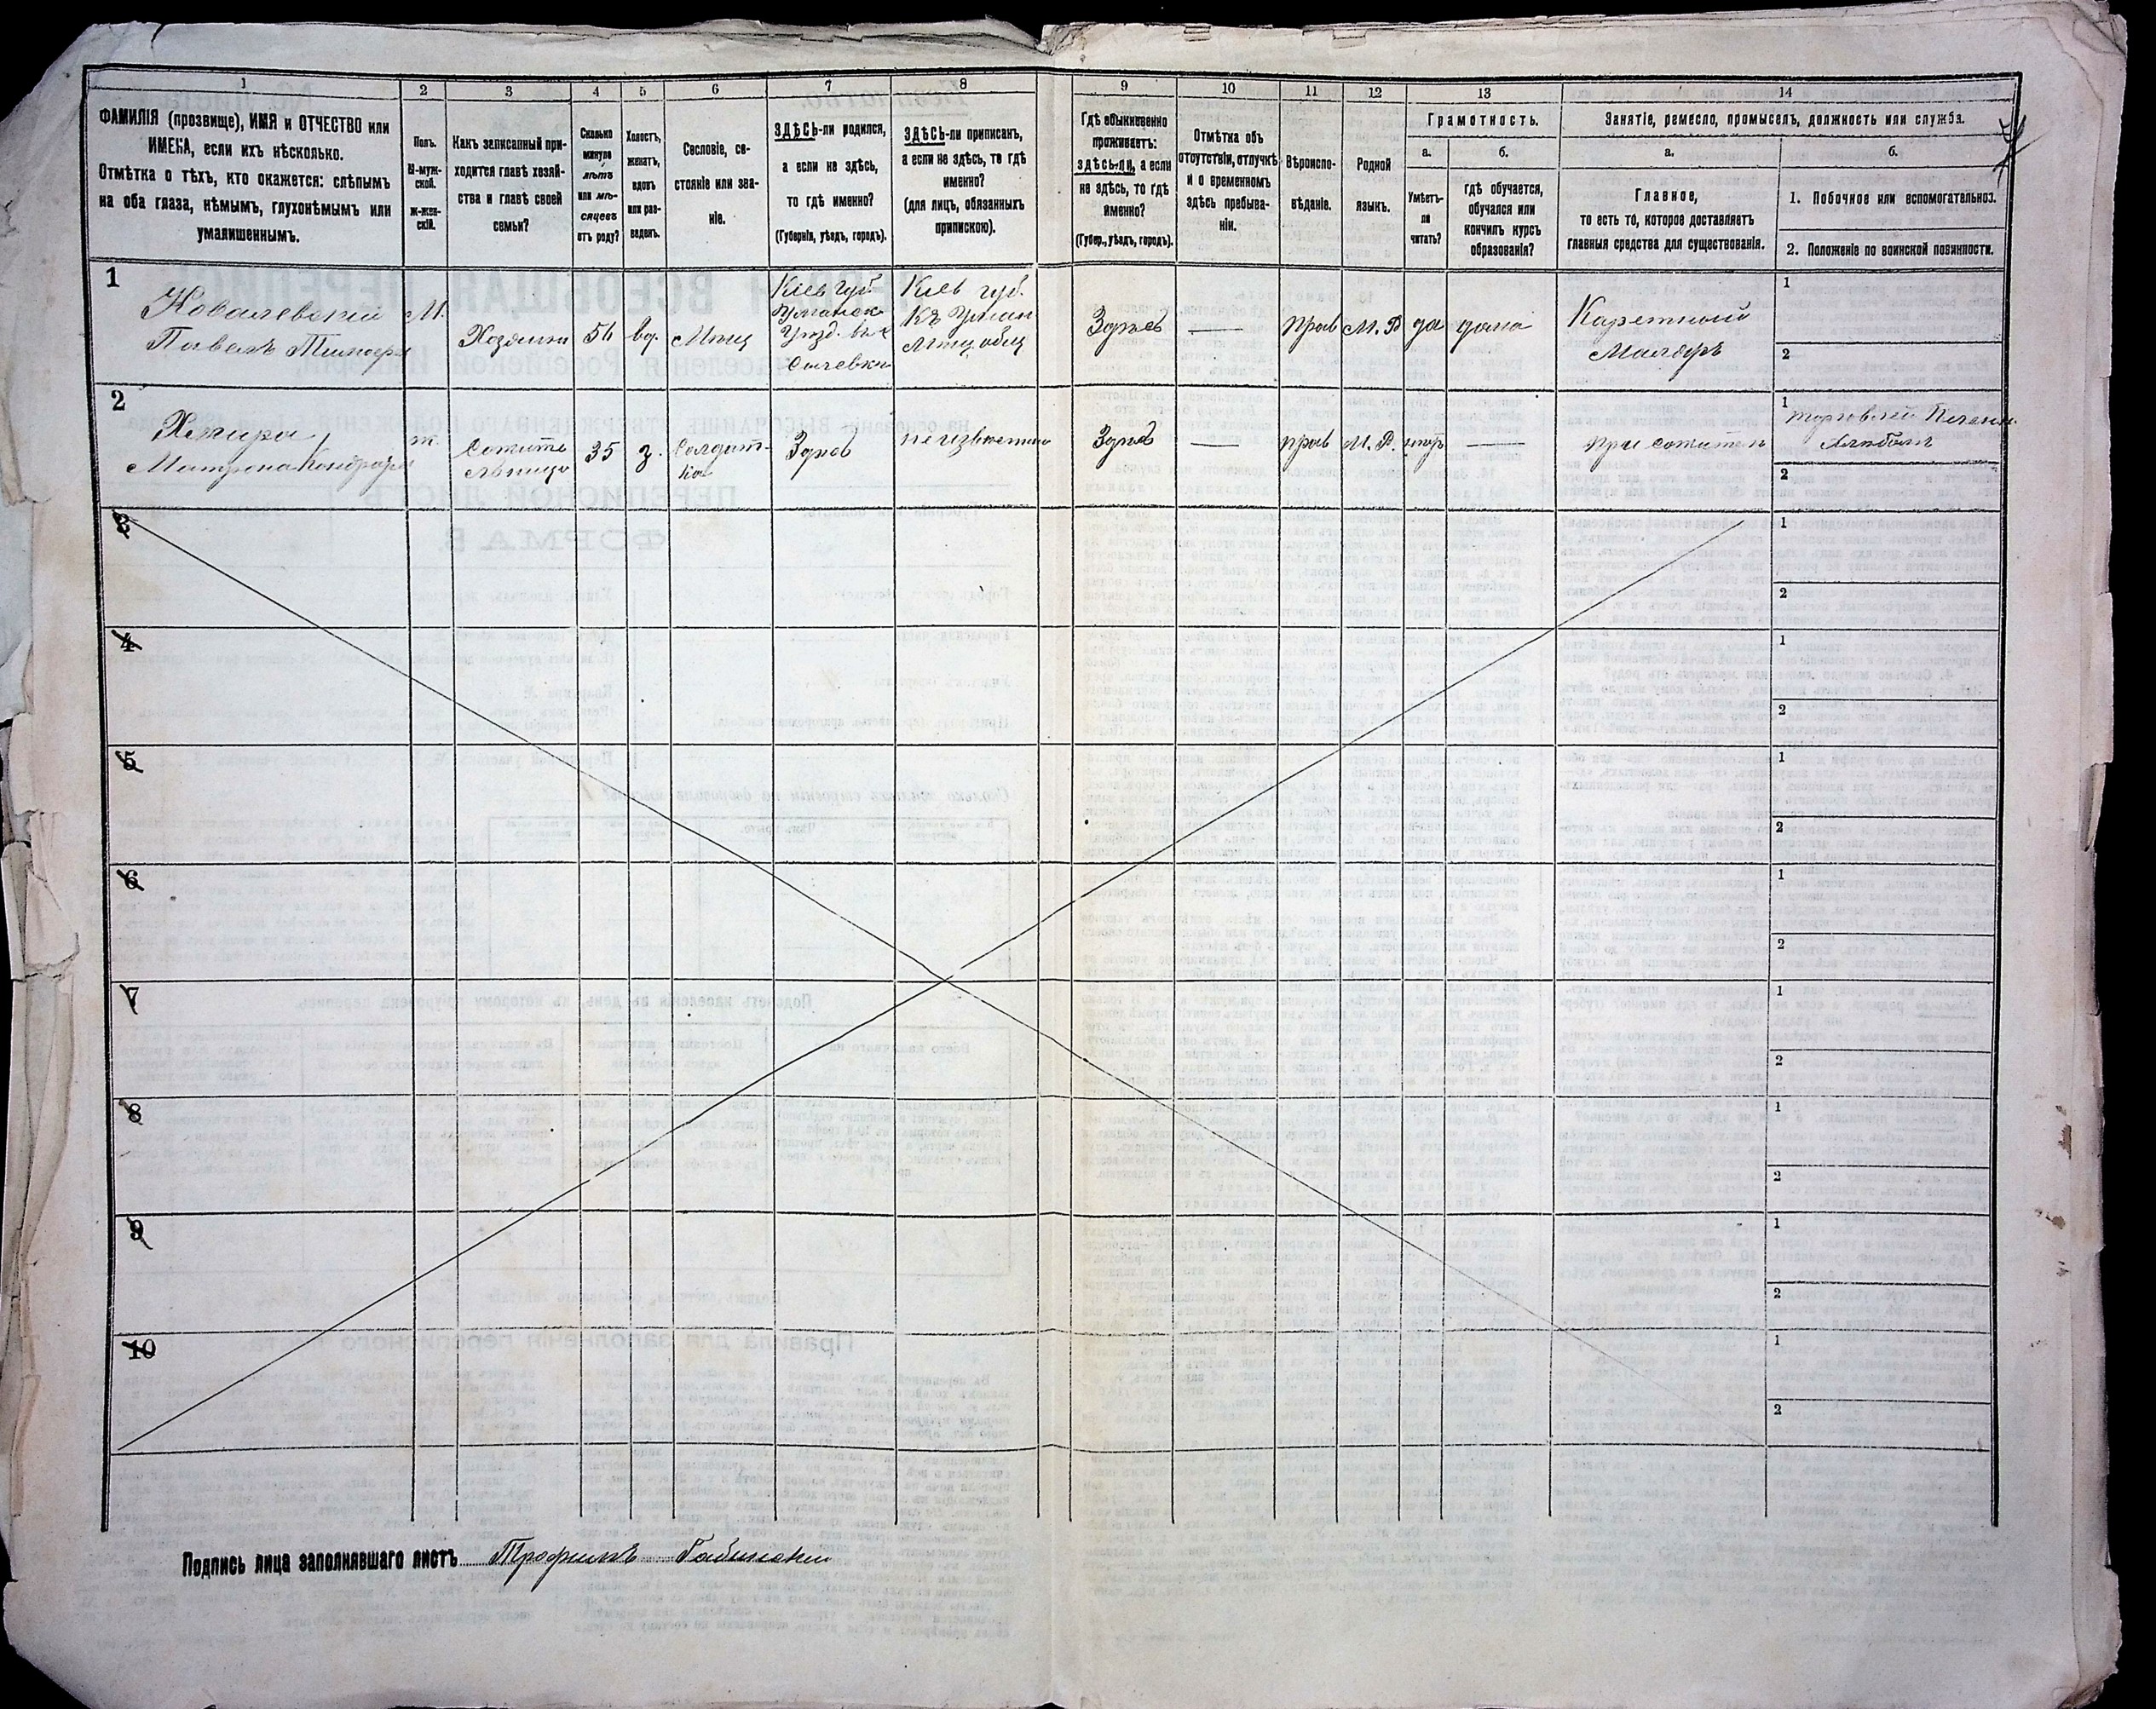 1 2 3 4 5 6 7 8 9 10 11 12 13 14
ФАМИЛІЯ (прозвище), ИМЯ и ОТЧЕСТВО или
ИМЕНА, если ихъ нѣсколько.
Отмѣтка о тѣхъ, кто окажется: слѣпымъ
на оба глаза, нѣмымъ, глухонѣмымъ или
умалишеннымъ.
Полъ.
М-муж-
ской.
Ж-жен-
скій.
Какъ записанный при-
ходится главѣ хозяй-
ства и главѣ своей
семьи?
Сколько
минуло
лѣтъ
или мѣ-
сяцевъ
отъ роду?
Холостъ,
женатъ,
вдовъ
или раз-
веденъ.
Сословіе, со-
стояніе или зва-
ніе.
ЗДѢСЬ-ли родился,
а если не здѣсь,
то гдѣ именно?
(Губернія, уѣздъ, городъ).
ЗДѢСЬ-ли приписанъ,
а если не здѣсь, то гдѣ
именно?
(для лицъ, обязанныхъ
припискою).
Гдѣ обыкновенно
проживаетъ:
здѣсь-ли, а если
не здѣсь, то гдѣ
именно?
(Губер., уѣздъ, городъ).
Отмѣтка объ
отсутствіи, отлучкѣ
и о временномъ
здѣсь пребыва-
ніи.
Вѣроиспо-
вѣданіе.
Родной
языкъ.
Грамотность.
а.
Умѣетъ-
ли
читать?
б.
гдѣ обучается,
обучался или
кончилъ курсъ
образованія?
Занятіе, ремесло, промыселъ, должность или служба.
а.
Главное,
то есть то, которое доставляетъ
главныя средства для существованія.
б.
1. Побочное или вспомогательное.
2. Положеніе по воинской повинности.
1
Ковалевскій
Павелъ
М.
Хозяинъ
56
вд.
Мѣщ
Кіев губ.
Кіев губ.
Мѣщ общ
Здѣсь
—
прав
М. Р
да
дома
Каретный
Маляръ
1
2
2
Матрона
ж.
Сожите
льница
35
з.
Солдат-
ка
Здѣсь
неизвѣстно
Здѣсь
—
прав
М. Р.
—
при сожителѣ
1
2
3
1
2
4
1
2
5
1
2
6
1
2
7
1
2
8
1
2
9
1
2
10
1
2
Подпись лица заполнявшаго листъ Трофимъ